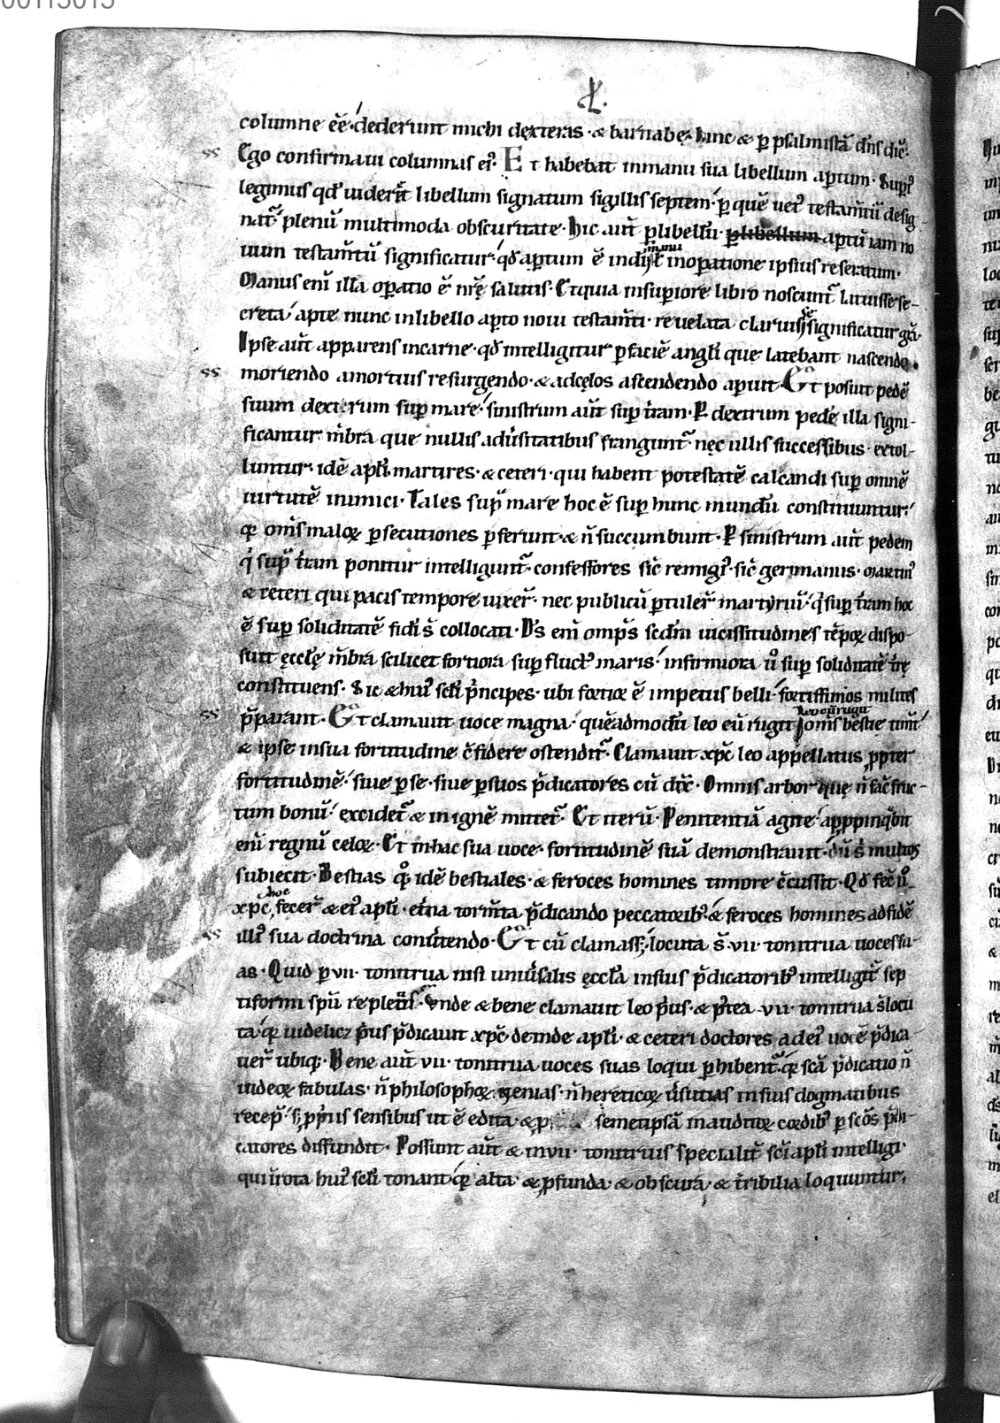 columne eē. dederunt michi dexteras. & barnabę. hinc & ꝑ psalmistā dn̄s dic̄.
Ego confirmaui columnas ei᷒. Et habebat inmanu sua libellum aꝑtum. Supi᷒
legimus qđ uiderit libellum signatum sigillis septem. ꝑ quē uet᷒ testam̄tū desig
nat᷒ plenū multimoda obscuritate. hic aut̄ ꝑ libellū ꝑ libellum aꝑtū iam no
uum testam̄tū significatur. qđ aꝑtum ē in manu inoꝑatione ipsius reseratum.
Manus eni᷒ illa oꝑatio ē nr̄ę salutis. Et quia insuꝑiore libro noscunt᷒ latuisse se-
creta. aꝑte nunc inlibello aꝑto noui testam̄ti. reuelata claruisse significatur. quā.
Ipse aut̄ apparens incarne. qđ intelligitur ꝑ faciē angl̄i que latebant nascendo.
moriendo amortuis resurgendo. & adcęlos ascendendo aꝑuit. Et posuit pedē
suum dexterum suꝑ mare. sinistrum aut̄ suꝑ t̄ram. P dextrum pedē illa signi-
ficantur m̄bra que nullis aduersitatibus frangunt᷒. nęc ullis successibus extol-
luntur. idē apl̄i martires. & ceteri. qui habent potestatē calcandi suꝑ omnē
uirtutē inimici. Tales suꝑ mare hoc ē suꝑ hunc mundū constituuntur.
quia om̄s maloꝝ ꝑsecutiones ꝑferunt. & n̄ succumbunt. P sinistrum aut̄ pedem
qui suꝑ t̄ram ponitur intelligunt᷒. confessores sic̄ remigi᷒. sic̄ germanus. martin᷒
& ceteri qui pacis tempore uixer᷒. nec publicū ꝑtuler᷒ martyriū. quia suꝑ t̄ram hoc
ē suꝑ soliditatē fidei s̄ collocati. Ds̄ eni᷒ omp̄s scđm uicissitudines tēpoꝝ dispo-
suit ęccl̄ę m̄bra scilicet fortiora suꝑ fluct᷒ maris. infirmiora u᷒ suꝑ soliditatē t̄rę
constituens. Sic & hui᷒ scl̄i p̄ncipes. ubi fortior ē impetus belli. fortissimos milites
p̄parant. Et clamauit uoce magna. quēadmodū leo cū rugit. leo cū rugit om̄s bestie timent
& ipse insua fortitudine c̄fidere ostendit᷒. Clamauit xp̄c leo appellatus ꝓpter
fortitudinē. siue ꝑ se. siue ꝑ suos p̄dicatores cū dic̄. Omnis arbor que n̄ fac̄ fruc-
tum bonū. excidet᷒ & in ignē mittet᷒. Et iterū. Penitentiā agite. appropinqbit
eni᷒ regnū celoꝝ. Et in hac sua uoce. fortitudinē suā demonstrauit. dū s̄ multos
subiecit. Bestias quo idē bestiales. & feroces homines timore c̄cussit. Qđ fec̄
xp̄c hoc fecer᷒ & ei᷒ apl̄i. et̄na torm̄ta p̄dicando peccatorib᷒. & feroces homines adfidē
illi᷒ sua doctrina conuertendo. Et cū clamasset. locuta s̄ .vii. tonitrua uoces su-
as. Quid ꝑ .vii. tonitrua nisi uniu᷒salis ęccl̄a insuis p̄dicatorib᷒ intelligit᷒ sep
tiformi spū repletis. Vnde & bene clamauit leo p̄us. & p̄tea .vii. tonitrua s̄ locu
ta. quia uidelicꝫ p̄us p̄dicauit xp̄c. deinde apl̄i. & ceteri doctores ad ei᷒ uocē p̄dica
uer᷒ ubiqꝫ. Bene aut̄ .vii. tonitrua uoces suas loqui ꝑhibent᷒. quia scā p̄dicatio n̄
iudeoꝝ fabulas. n̄ philosophoꝝ genias. n̄ hereticoꝝ uersutias insuis dogmatibus
recep᷒. s; ꝓpriis sensibus ut ē edita. & semetipsā inauditoꝝ cordib᷒ ꝑ scōs p̄di-
catores diffundit. Possunt aut̄ & in .vii. tonitruis specialit᷒ sci apl̄i intelligi.
qui irota hui᷒ scl̄i tonant. quia alta. & ꝓfunda. & obscura. & t̄ribilia loquuntur.